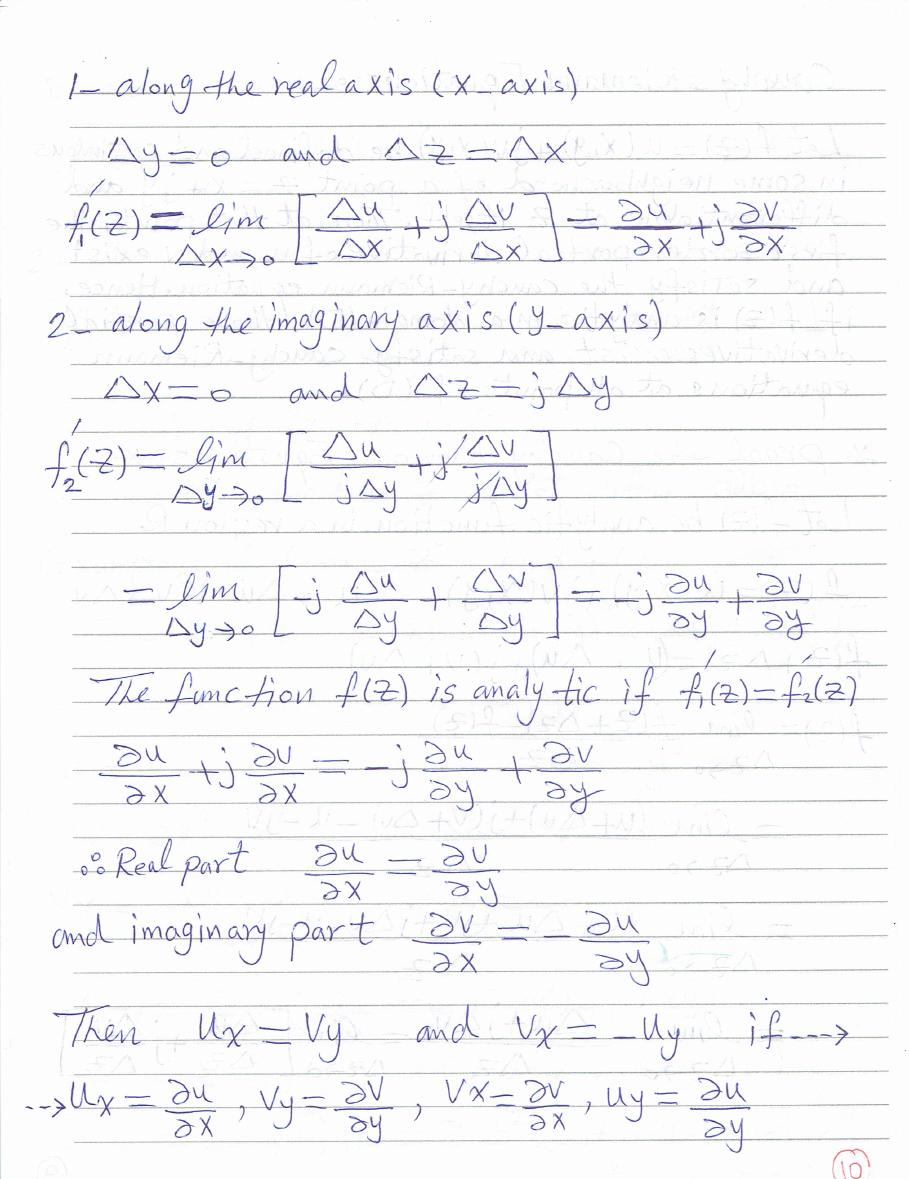 1- along the real axis (x-axis)
Δy = 0 and Δz = Δx
f₁'(z) = lim Δx→0 [Δu/Δx + j Δv/Δx] = ∂u/∂x + j ∂v/∂x
2- along the imaginary axis (y-axis)
Δx = 0 and Δz = jΔy
f₂'(z) = lim Δy→0 [Δu/jΔy + j Δv/jΔy]
= lim Δy→0 [-j Δu/Δy + Δv/Δy] = -j ∂u/∂y + ∂v/∂y
The function f(z) is analytic if f₁'(z) = f₂'(z)
∂u/∂x + j ∂v/∂x = -j ∂u/∂y + ∂v/∂y
∴ Real part ∂u/∂x = ∂v/∂y
and imaginary part ∂v/∂x = - ∂u/∂y
Then Ux = Vy and Vx = -Uy if --->
--->Ux = ∂u/∂x , Vy = ∂v/∂y , Vx = ∂v/∂x , Uy = ∂u/∂y
10